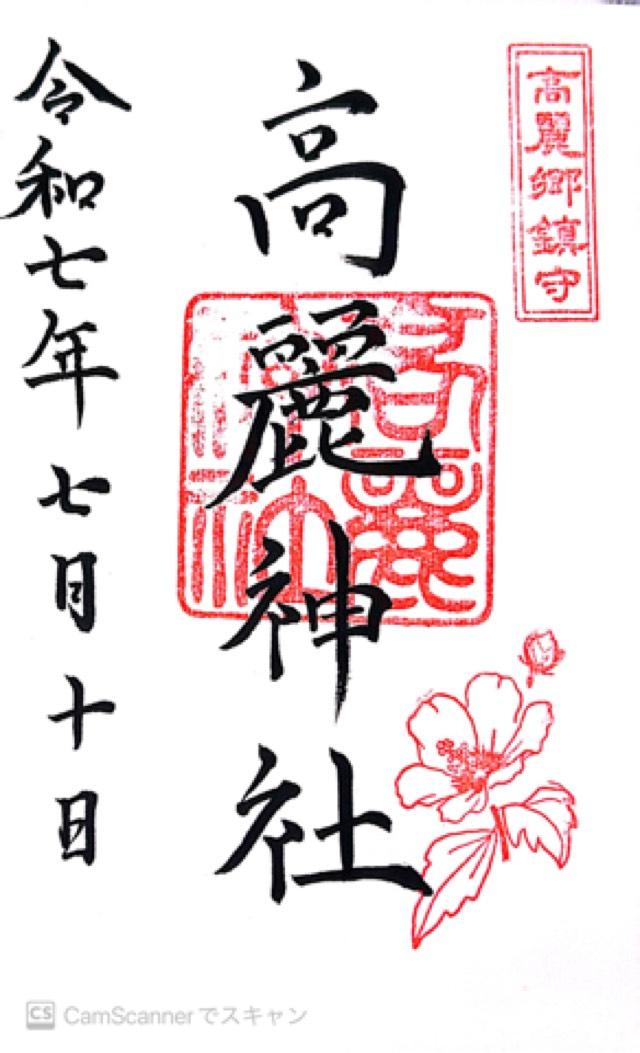 高麗郷鎮守
高麗神社
令和七年七月十日
CS CamScannerでスキャン